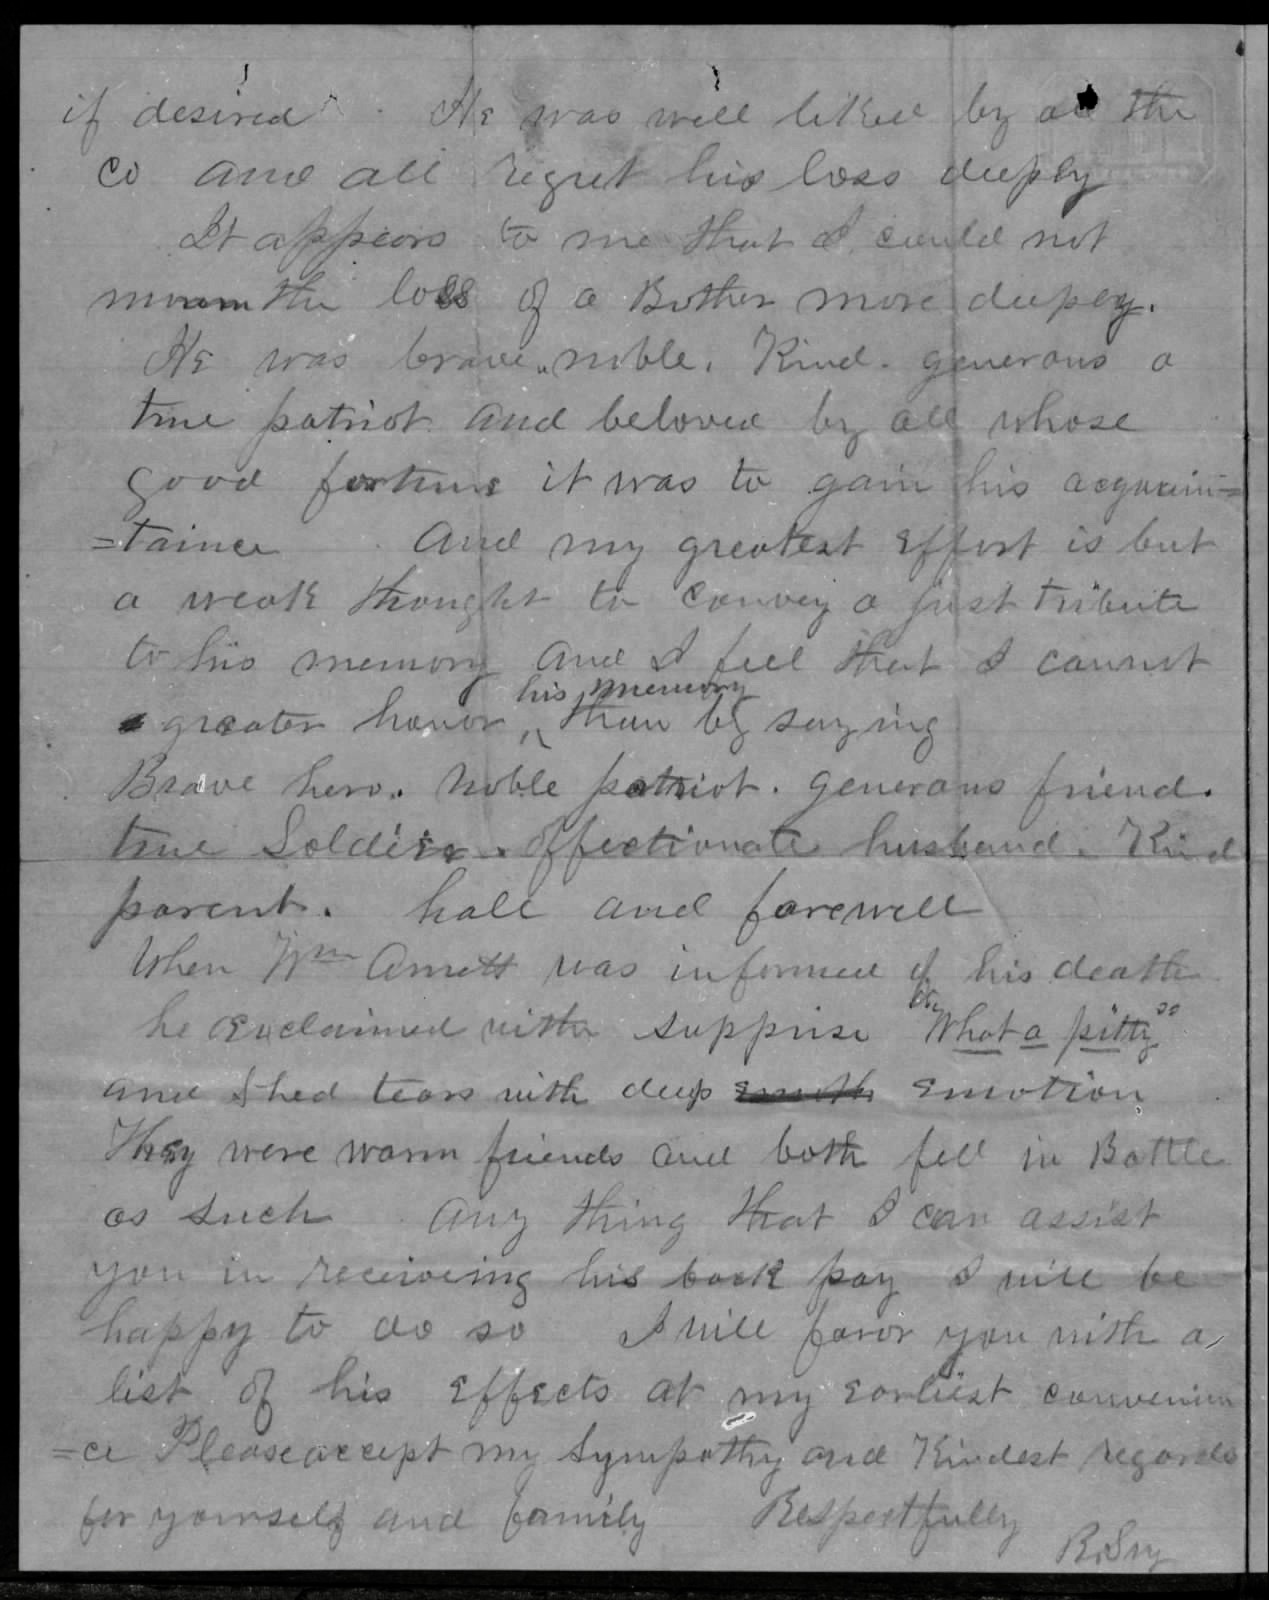 if desired. He was well liked by all the
co and all regret his loss deeply
It appears to me that I could not
mourn the loss of a Bother more deepey.
He was brave, noble. Kind. generous a
true patriot and beloved by all whose
good fortune it was to gain his acquain=
=taince And my greatest effort is but
a weak thought to convey a just tribute
to his memory and I feel that I cannot
greater honor his memory than by saying
Brave hero. Noble patriot. generous friend.
true Soldier. affectionate husband. Kind
parent. hale and farewell
When Wm Arnett was informed of his death
he exclaimed with supprise "What a pitty"
and shed tears with deep emotion
They were warm friends and both fell in Battle
as such Any thing that I can assist
you in receiveing his back pay I will be
happy to do so I will favor you with a
list of his effects at my earliest convenien
=ce Please accept my sympathy and Kindest regards
for yourself and family Respectfully